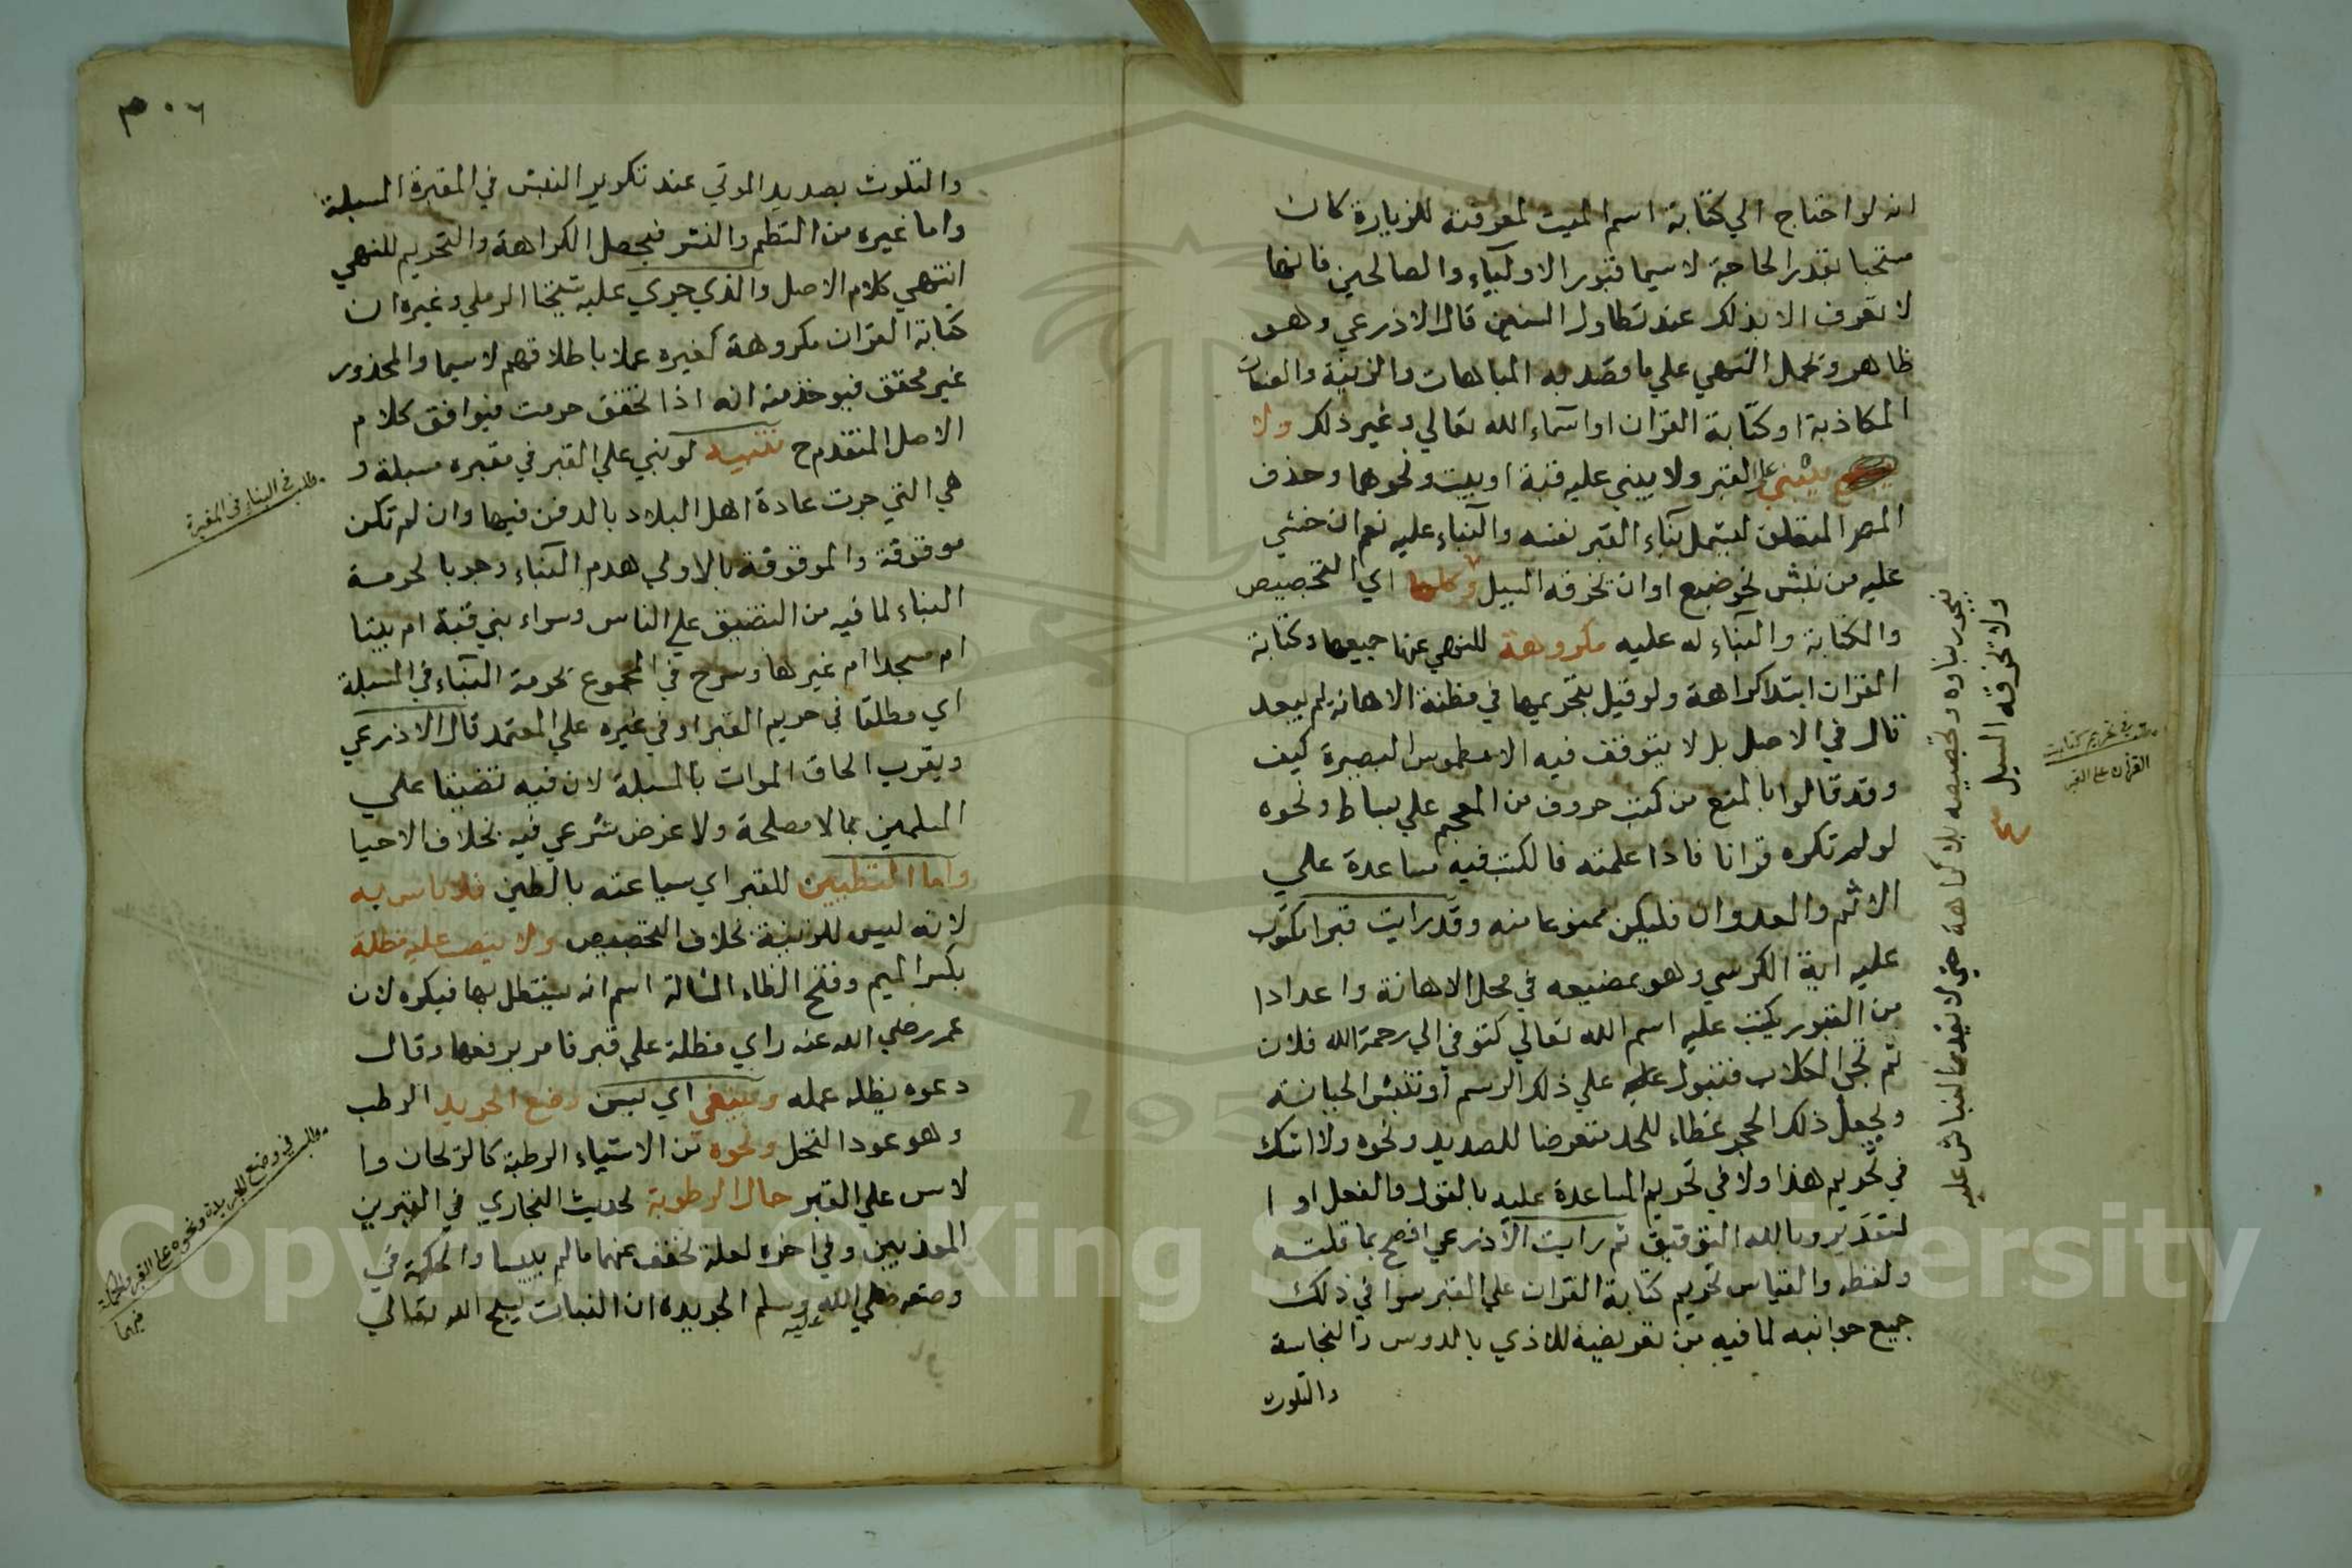 انه لو احتاج الي كتابة اسم الميت لمعرفته للزيارة كان
مستحبا بقدر الحاجة لاسيما قبور الاولياء والصالحين فانها
لا تعرف الا بذلك عند تطاول السنين قال الاذرعي وهو
ظاهر وتحمل النهي علي ما قصد به المباهات والزينة والصفات
المكاذبة او كتابة القران او اسماء الله تعالي وغير ذلك ولا
يبني علي القبر ولا يبني عليه قبة او بيت ونحوهما وحذف
المص المتعلق ليشمل بناء القبر نفسه والبناء عليه نعم ان خشي
عليه من نبش نحو ضبع او ان تخرقه السيل وكلها اي التجصيص
والكتابة والبناء له عليه مكروهة للنهي عنها جميعها وكتابة
القران ابتدا كراهة ولو قيل بتحريمها في مظنة الاهانة لم يبعد
قال في الاصل بل لا يتوقف فيه الا مطموس البصيرة كيف
وقد قالوا بالمنع من كتب حروف من المعجم علي بساط ونحوه
لو لم تكره قرانا فاذا علمته فالكتب فيه مساعدة علي
الاثم والعدوان فليكن ممنوعا منه وقد رايت قبرا مكتوب
عليه اية الكرسي وهو بمضيعه في محل الاهانة واعدادا
من القبور يكتب عليه اسم الله تعالي كتوفي الي رحمة الله فلان
ثم تجي الكلاب فتبول عليه علي ذلك الرسم او تنبش الجبانة
ويجعل ذلك الحجر غطاء للحد متعرضا للصديد ونحوه ولا اشك
في تحريم هذا ولا في تحريم المساعدة عليه بالقول والفعل او ا
لتقدير وبالله التوفيق ثم رايت الاذرعي افصح بما قلته
ولفظه والقياس تحريم كتابة القران علي القبر سوا في ذلك
جميع جوانبه لما فيه من تعريضه للاذي بالدوس والنجاسة
والتلوث
يجوز بناوه وتجصيصه بلا كراهة حتي لا يقدر النباش عليه
ولا تخرقه السيل
في تحريم كتابت
القران علي القبر
والتلوث بصديد الموتي عند تكرير النبش في المقبرة المسبلة
واما غيره من النظم والنثر فيحصل الكراهة والتحريم للنهي
انتهي كلام الاصل والذي جري عليه شيخنا الرملي وغيره ان
كتابة القران مكروهة كغيره عملا باطلاقهم لاسيما والمحذور
غير محقق فيوخذ منه انه اذا تحقق حرمت فيوافق كلام
الاصل المتقدم ح تنبيه لو بني علي القبر في مقبره مسبلة و
هي التي جرت عادة اهل البلاد بالدفن فيها وان لم تكن
موقوفة والموقوفة بالاولي هدم البناء وجوبا لحرمة
البناء لما فيه من التضييق علي الناس وسواء بني قبة ام بيتا
ام مسجدا ام غيرها وصرح في المجموع بحرمة البناء في المسبلة
اي مطلقا في حريم القبر او في غيره علي المعتمد قال الاذرعي
ويقرب الحاق الموات بالمسبلة لان فيه تضييقا علي
المسلمين بما لا مصلحة ولا غرض شرعي فيه بخلاف الاحيا
واما التطيين للقبر اي سياعته بالطين فلا باس به
لانه ليس للزينة بخلاف التجصيص ولا ينصب عليه مظلة
بكسر الميم وفتح الظاء المشالة اسم انه يستظل بها فيكره لان
عمر رضي الله عنه راي مظلة علي قبر فامر برفعها وقال
دعوه يظله عمله وينبغي اي يسن وضع الجريد الرطب
وهو عود النخل ونحوه من الاشياء الرطبة كالريحان وا
لاس علي القبر حال الرطوبة لحديث البخاري في القبرين
المعذبين وفي اخره لعله يخفف عنهما ما لم ييبسا والحكمة في
وضعه صلي الله عليه وسلم الجريدة ان النبات يسبح الله تعالي
مطلب في البناء في المقبرة
مطلب في وضع الجريدة ونحوه علي القبر والحكمة
فيهما